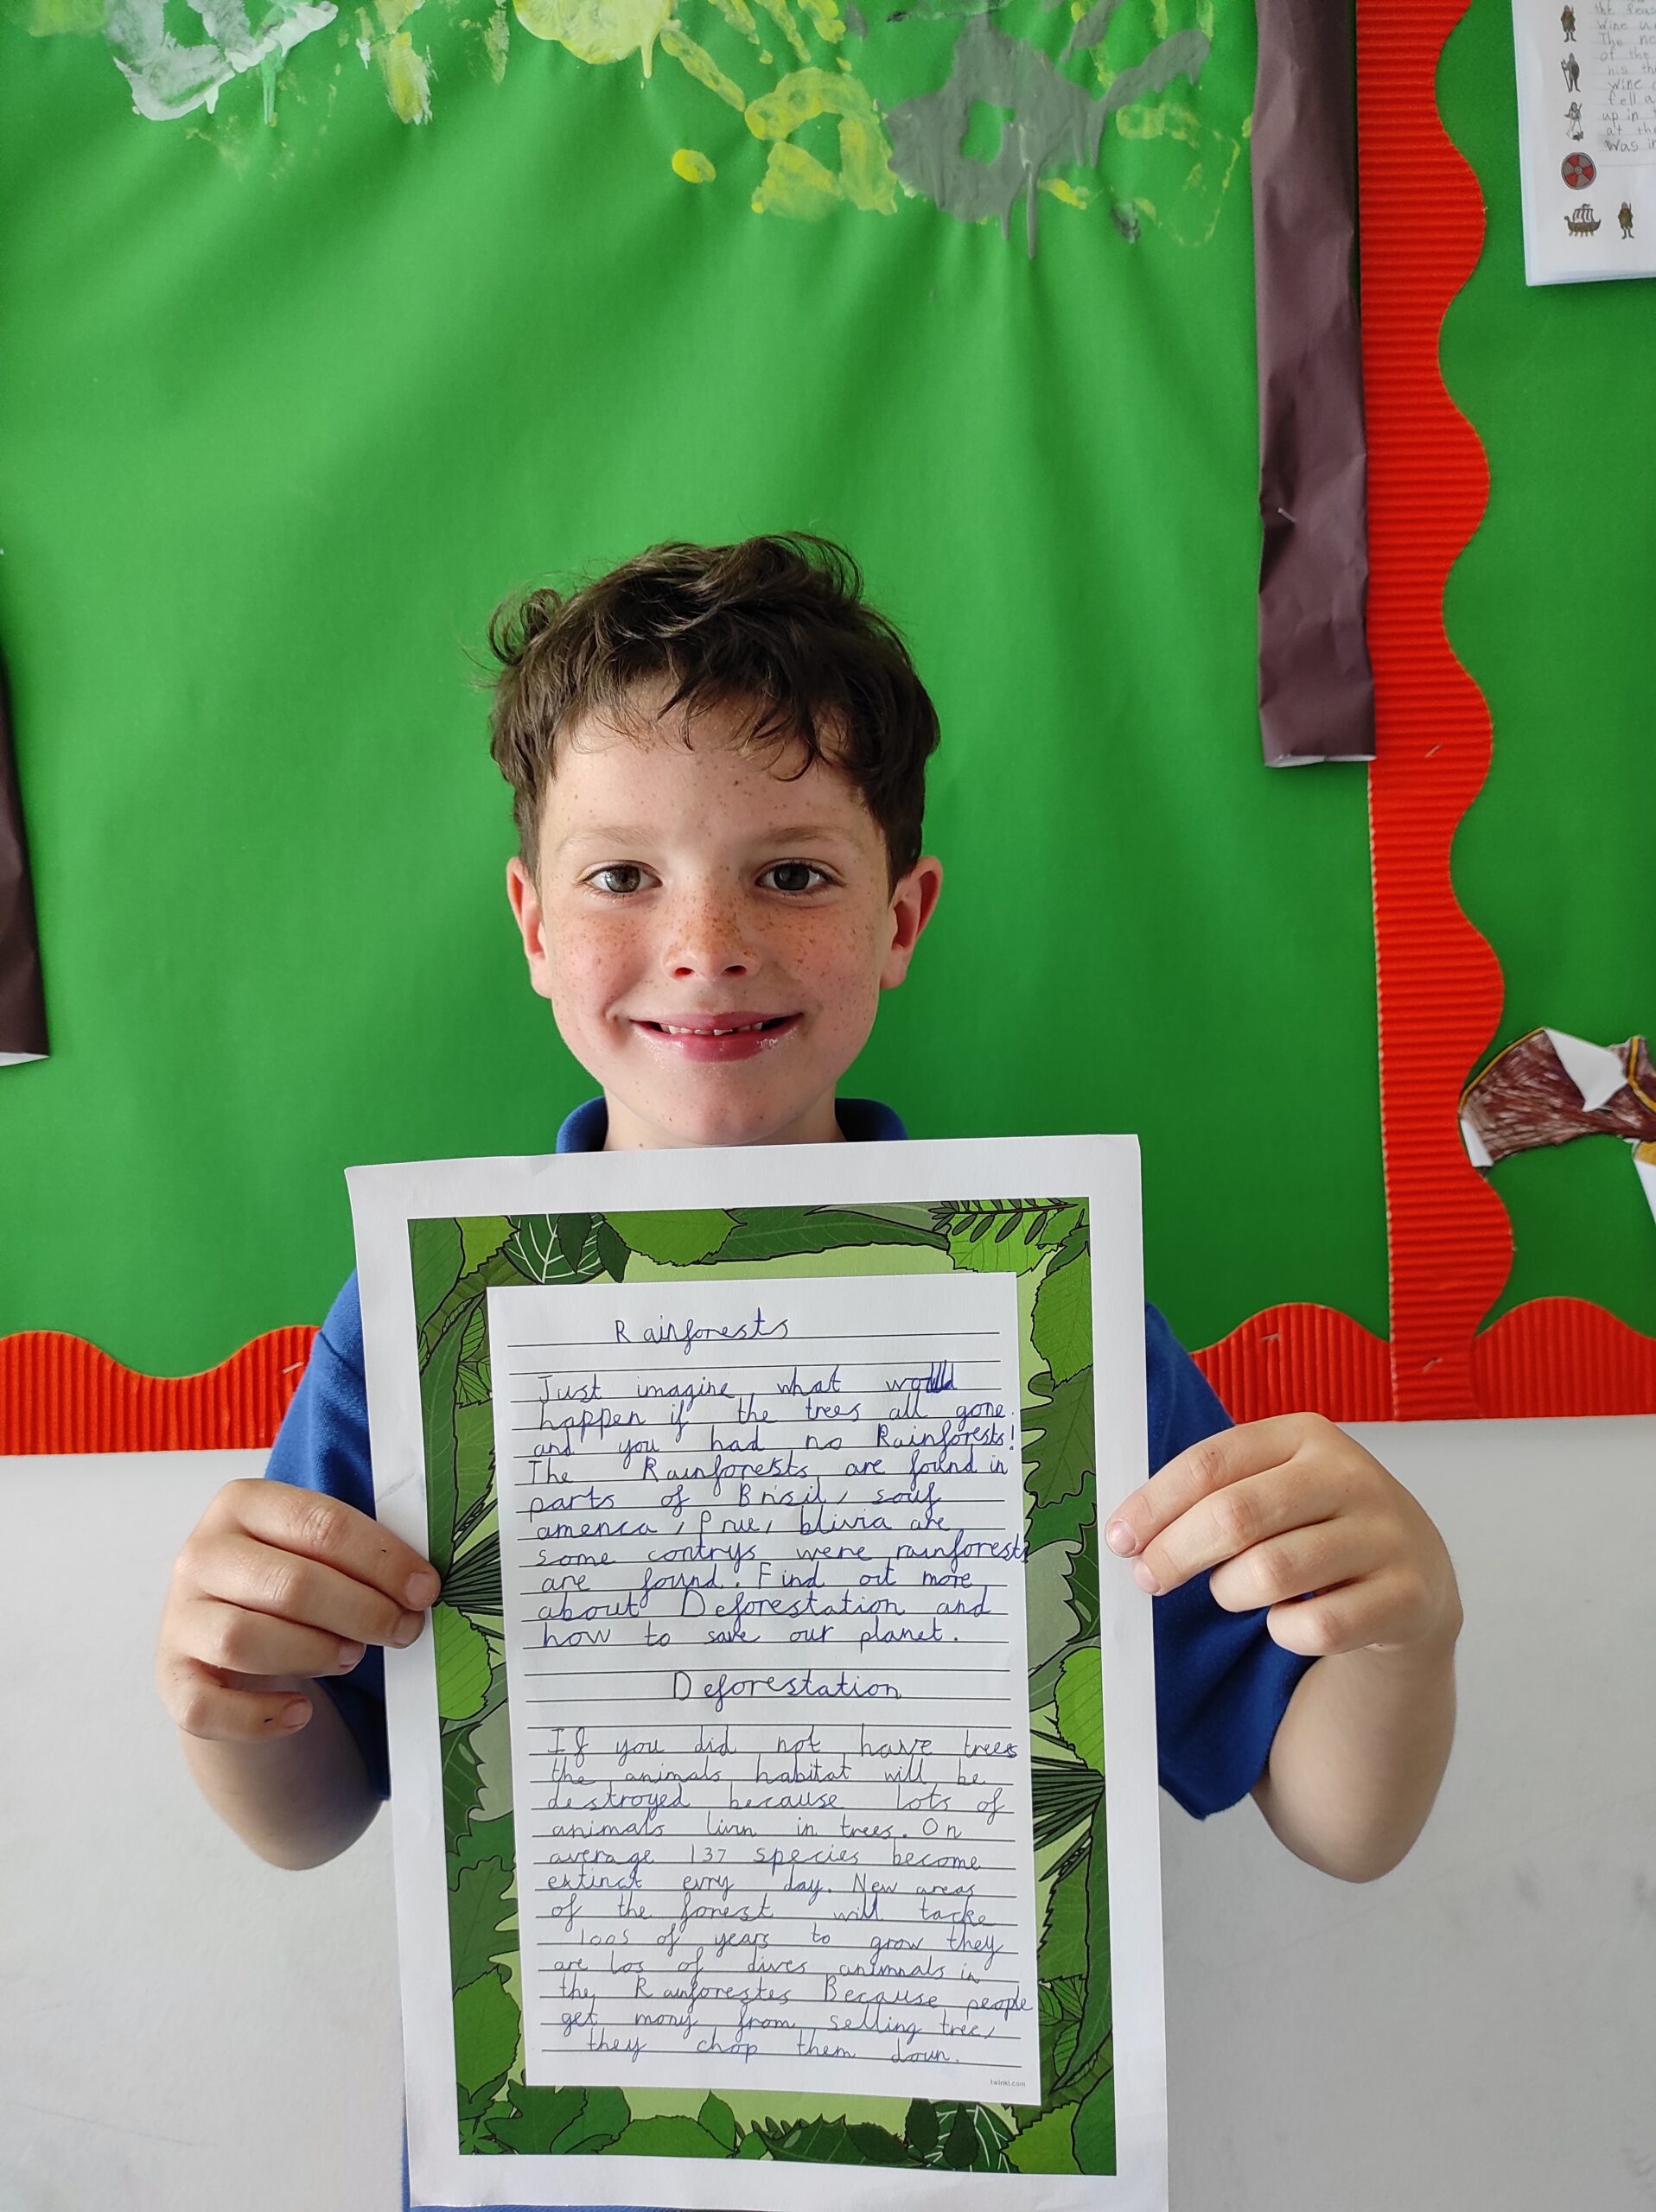 the feas
wine u
The ne
of the
his th
wine
fell a
up in
at the
was in
Rainforests
Just imagine what would
happen if the trees all gone.
and you had no Rainforests!
The Rainforests are found in
parts of Brisil, souf
amenca, Prue, blivia are
some contrys were rainforests
are found. Find out more
about Deforestation and
how to save our planet.
Deforestation
If you did not have trees
the animals habitat will be
destroyed because lots of
animals livn in trees. On
average 137 species become
extinct evry day. New areas
of the forest will tacke
100s of years to grow they
are los of dives animnals in
the Rainforestes Because people
get mony from selling tree,
they chop them down.
twinkl.com